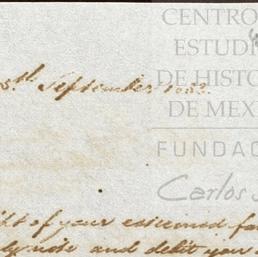 CENTRO
ESTUDI
DE HISTO
DE MEX
FUNDAC
Carlos
5th September
of your esteemed
note and debit your